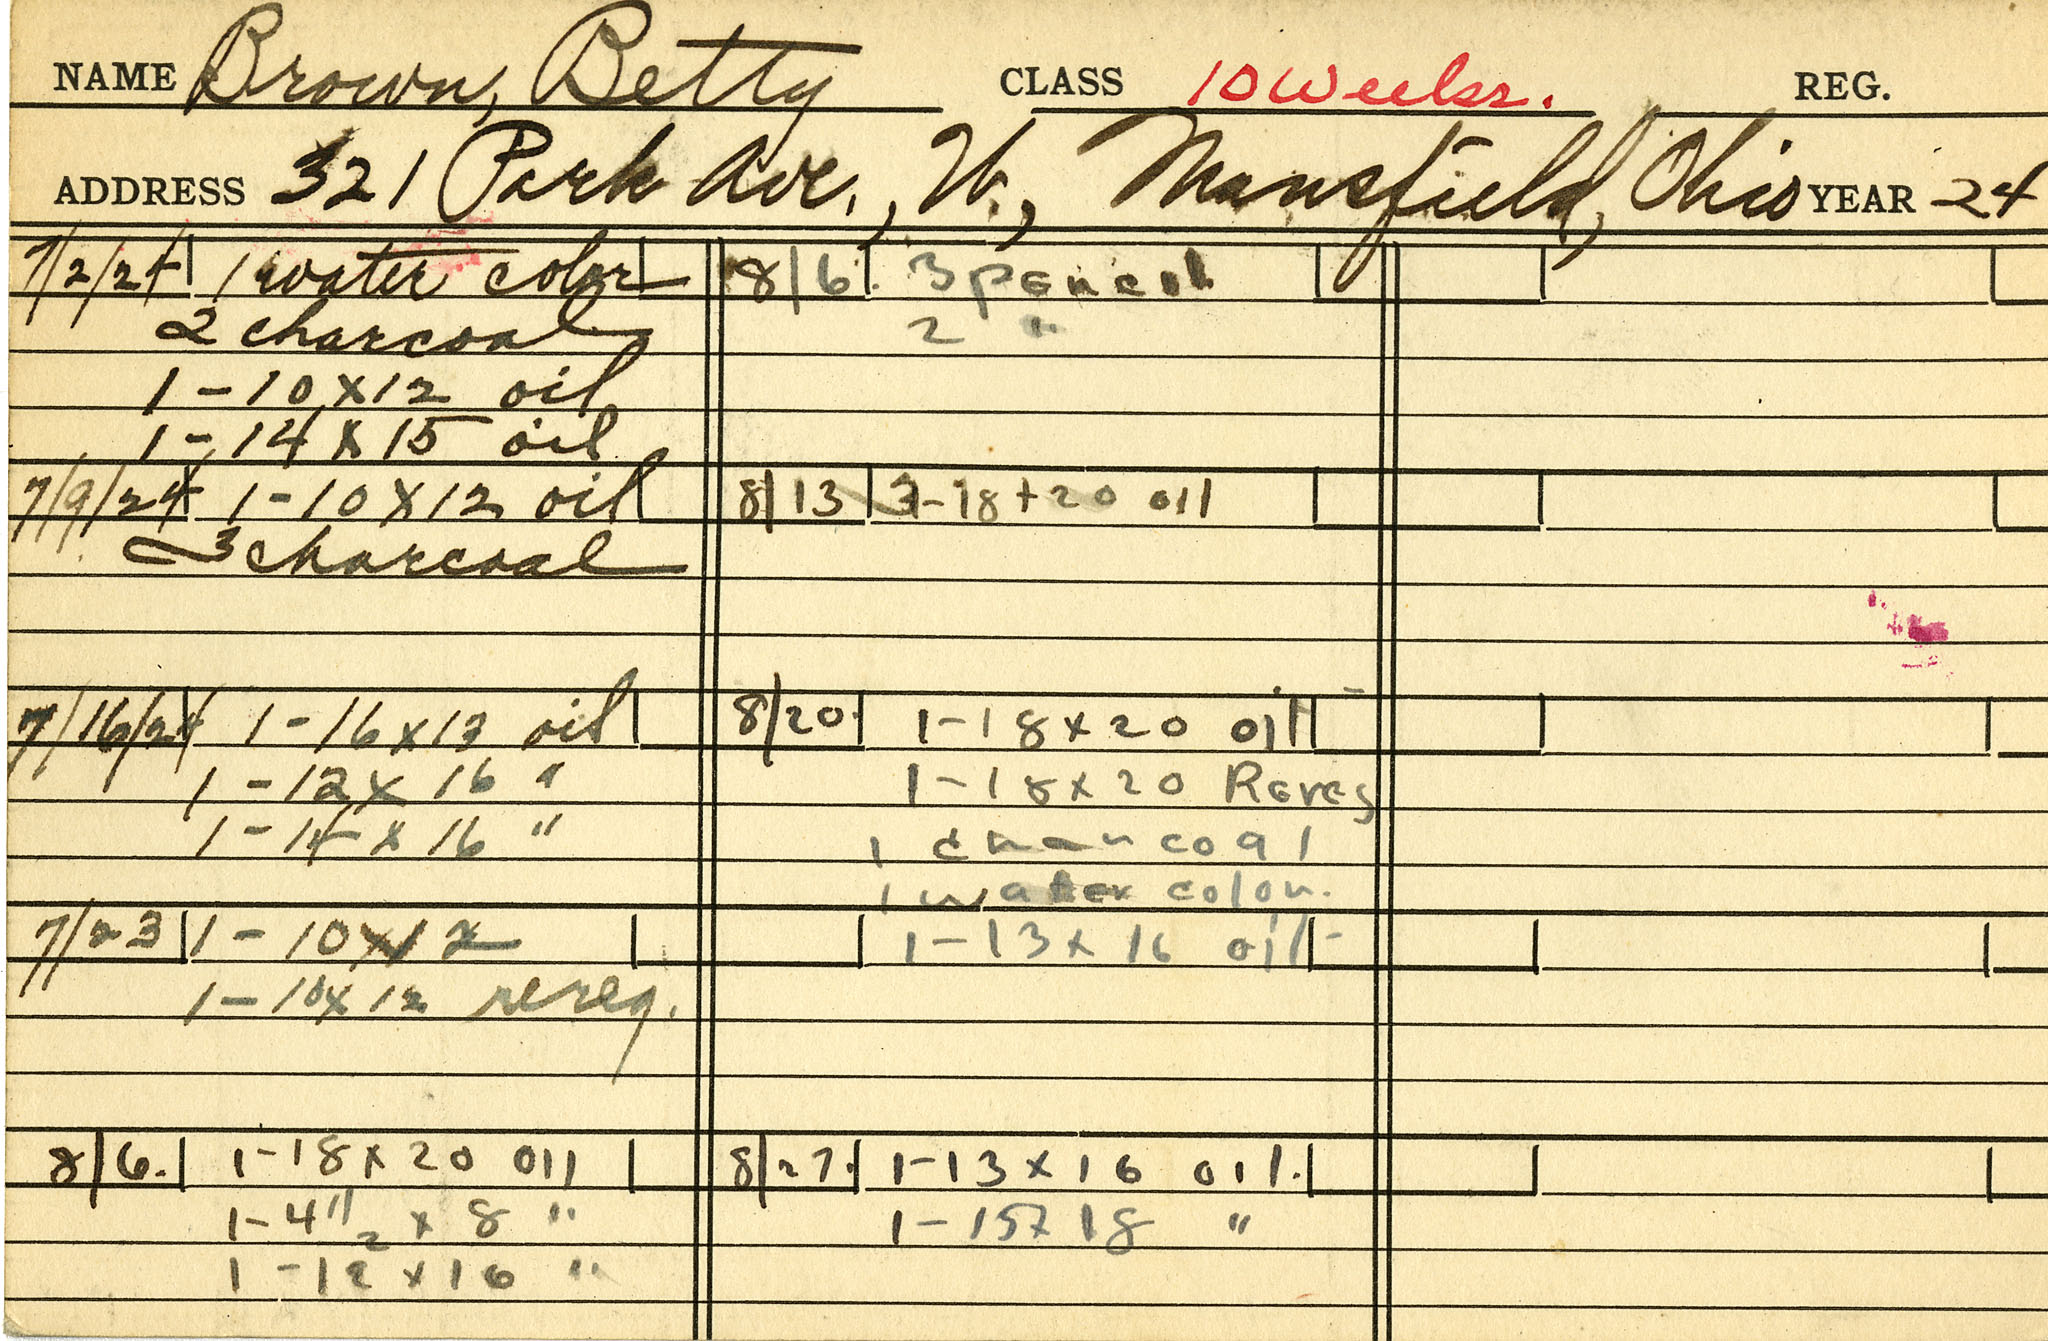 NAME Brown, Betty CLASS 10 Weeks. REG.
ADDRESS 321 Park Ave., W., Mansfield, Ohio YEAR 24
7/2/24 1 water color
2 charcoal
1 - 10 x 12 oil
1 - 14 x 15 oil
7/9/24 1 - 10 x 12 oil
3 charcoal
7/16/24 1 - 16 x 13 oil
1 - 12 x 16 "
1 - 14 x 16 "
7/23 1 - 10 x 12
1 - 10 x 12 rereg.
8/6. 1 - 18 x 20 oil
1 - 4 1/2 x 8 "
1 - 12 x 16 "
8/6. 3 pencil
2 "
8/13 - 18 + 20 oil
8/20. 1 - 18 x 20 oil
1 - 18 x 20 Rereg
1 charcoal
1 water color.
1 - 13 x 16 oil -
8/27. 1 - 13 x 16 oil.
1 - 15 x 18 "